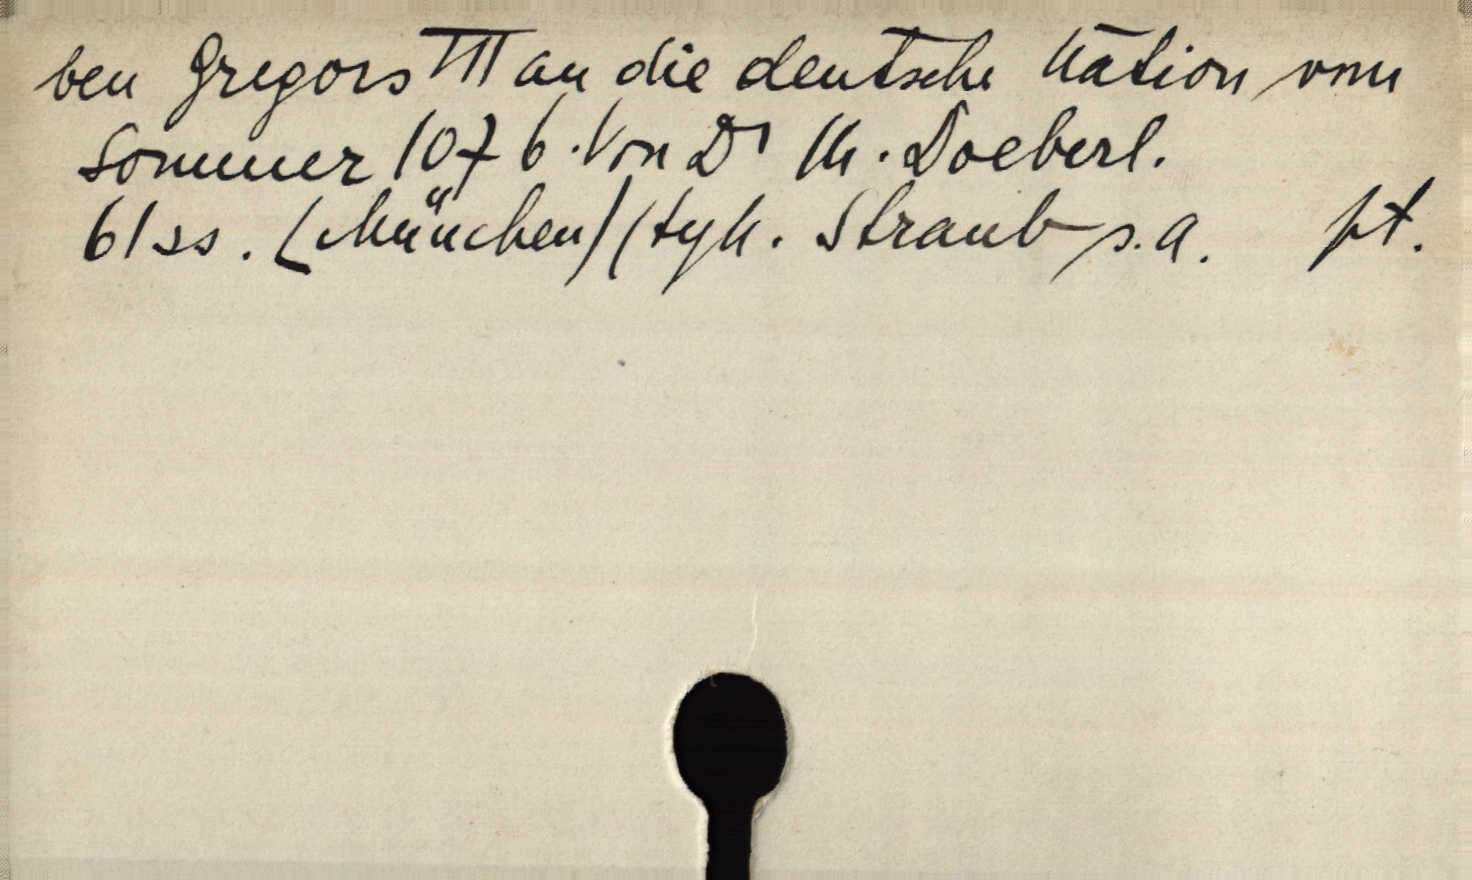 ben Gregors VII an die deutsche Nation vom
Sommer 1076. Von Dr M. Doeberl.
61 ss. (München) (typ. Straub s.a. pt.